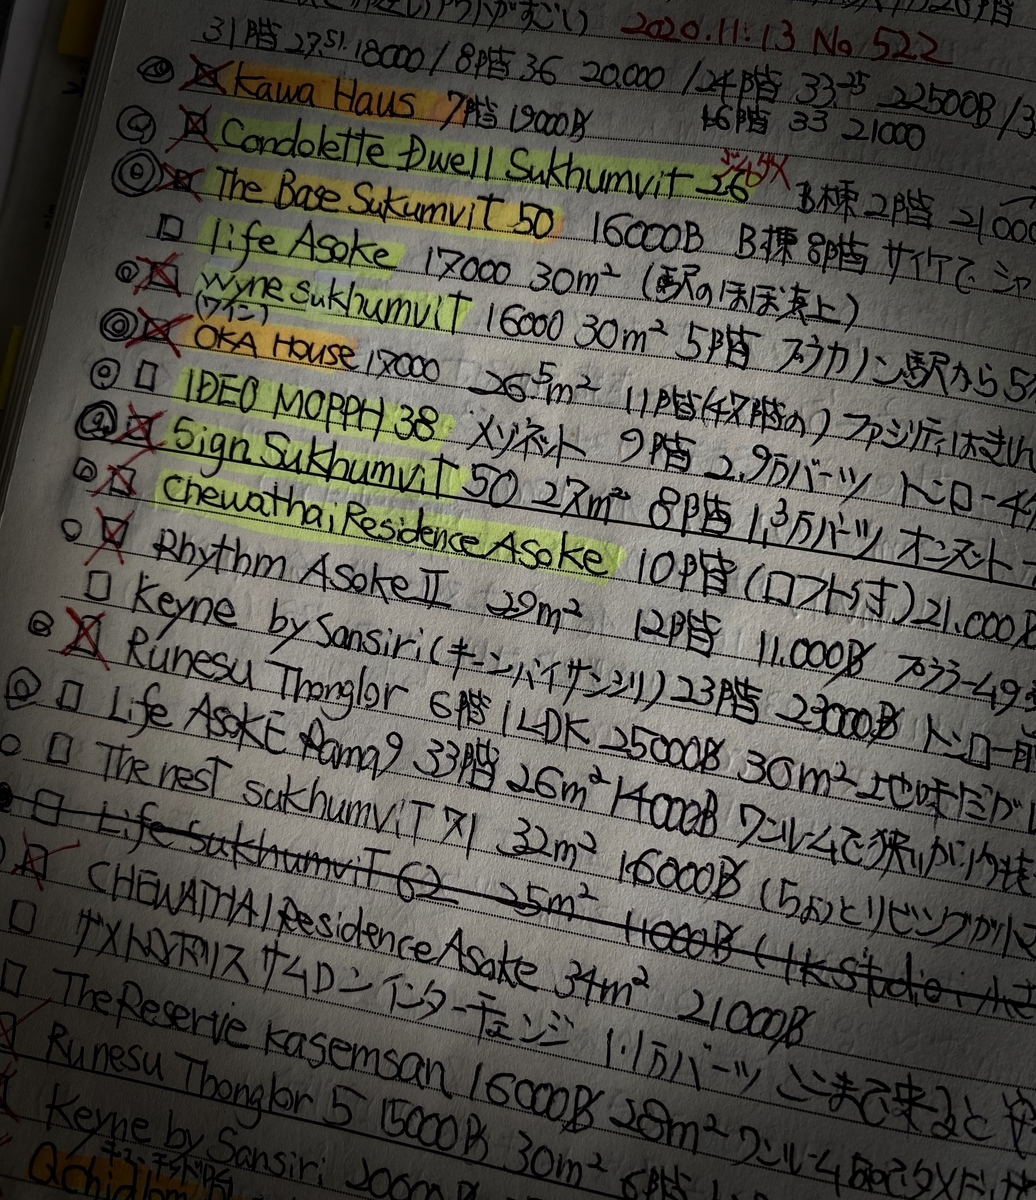 すごい 2020.11.13 No.522
31階 27.51 18000 / 8階 36 20,000 / 24階 33.25 22500B
Kawa Haus 7階 19000B 16階 33 21000
Condolette Dwell Sukhumvit 26 B棟 2階
The Base Sukumvit 50 16000B B棟 8階
life Asoke 17000 30m² (駅のほぼ真上)
Wyne Sukhumvit 16000 30m² 5階 プラカノン駅から5
(ワイン)
OKA House 17000 26.5m² 11階(47階の)
IDEO MORPH 38 メゾネット 9階 2.9万バーツ トンロー
Sign Sukhumvit 50 27m² 8階 1.3万バーツ オンヌット
Chewathai Residence Asoke 10階 (ロフト 21.000B
Rhythm Asoke II 29m² 12階 11.000B
Keyne by Sansiri (キーンバイサンシリ) 23階 23000B トンロー前
Runesu Thonglor 6階 1LDK 25000B 30m² 地味だが
Life AsokE Rama9 33階 26m² 14000B ワンルームで狭いが内装
The nest sukhumviT 71 32m² 16000B (ちょっとリビングが小
Life SukhumviT 62 25m² 11000B (1K Studio
CHEWATHAI Residence Asoke 34m² 21000B
インターチェンジ 1.1万バーツ ここまで来ると
The Reserve Kasemsan 16000B 28m² ワンルーム
Runesu Thonglor 5 15000B 30m² 6階
Keyne by Sansiri